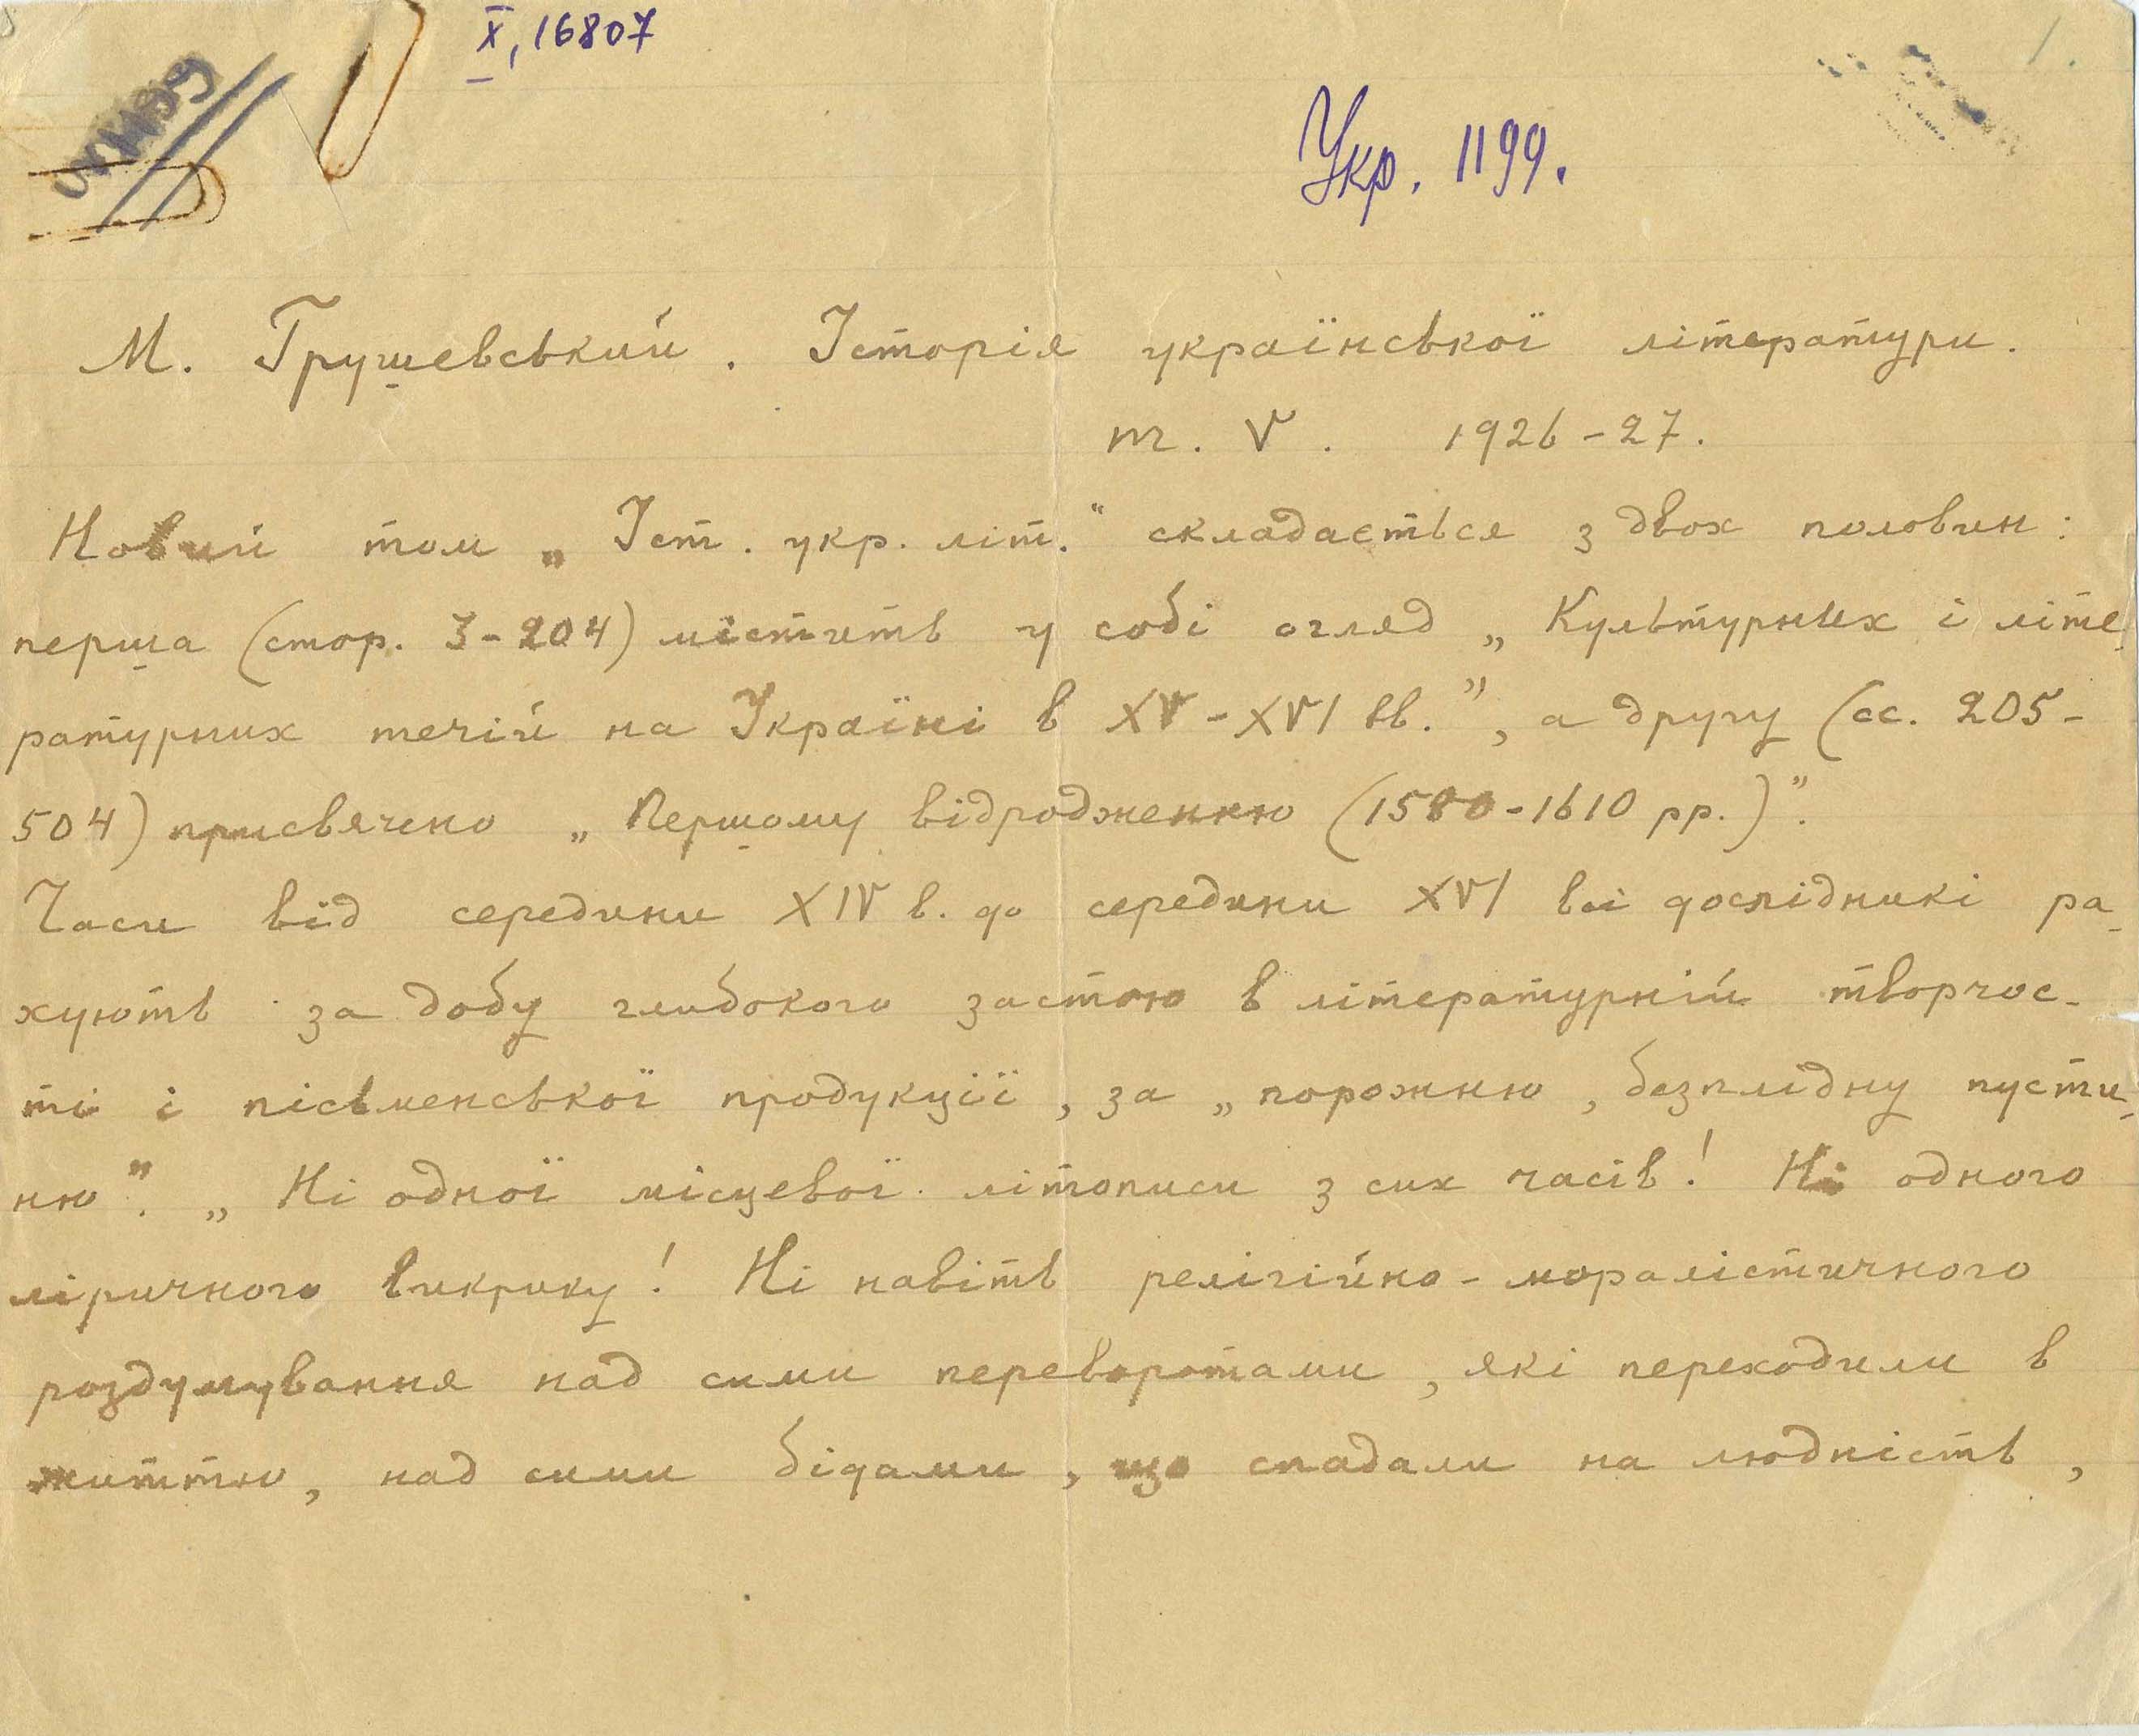 X, 16807
1.
Укр. 1199.
М. Грушевський. Історія української літератури.
т. V. 1926-27.
Новий том „Іст. укр. літ.“ складається з двох половин:
перша (стор. 3-204) містить у собі огляд „Культурних і літе-
ратурних течій на Україні в XV-XVI вв.”, а другу (сс. 205-
504) присвячено „Першому відродженню (1580-1610 рр.)”.
Часи від середини XIV в. до середини XVI всі дослідникі ра-
хують за добу глибокого застою в літературній творчос-
ті і пісьменської продукції, за „порожню, безплідну пусти-
ню”. „Ні одної місцевої літописи з сих часів! Ні одного
ліричного викрику! Ні навіть релігійно-моралістичного
роздумування над сими переворотами, які переходили в
життю, над сими бідами, що спадали на людність,